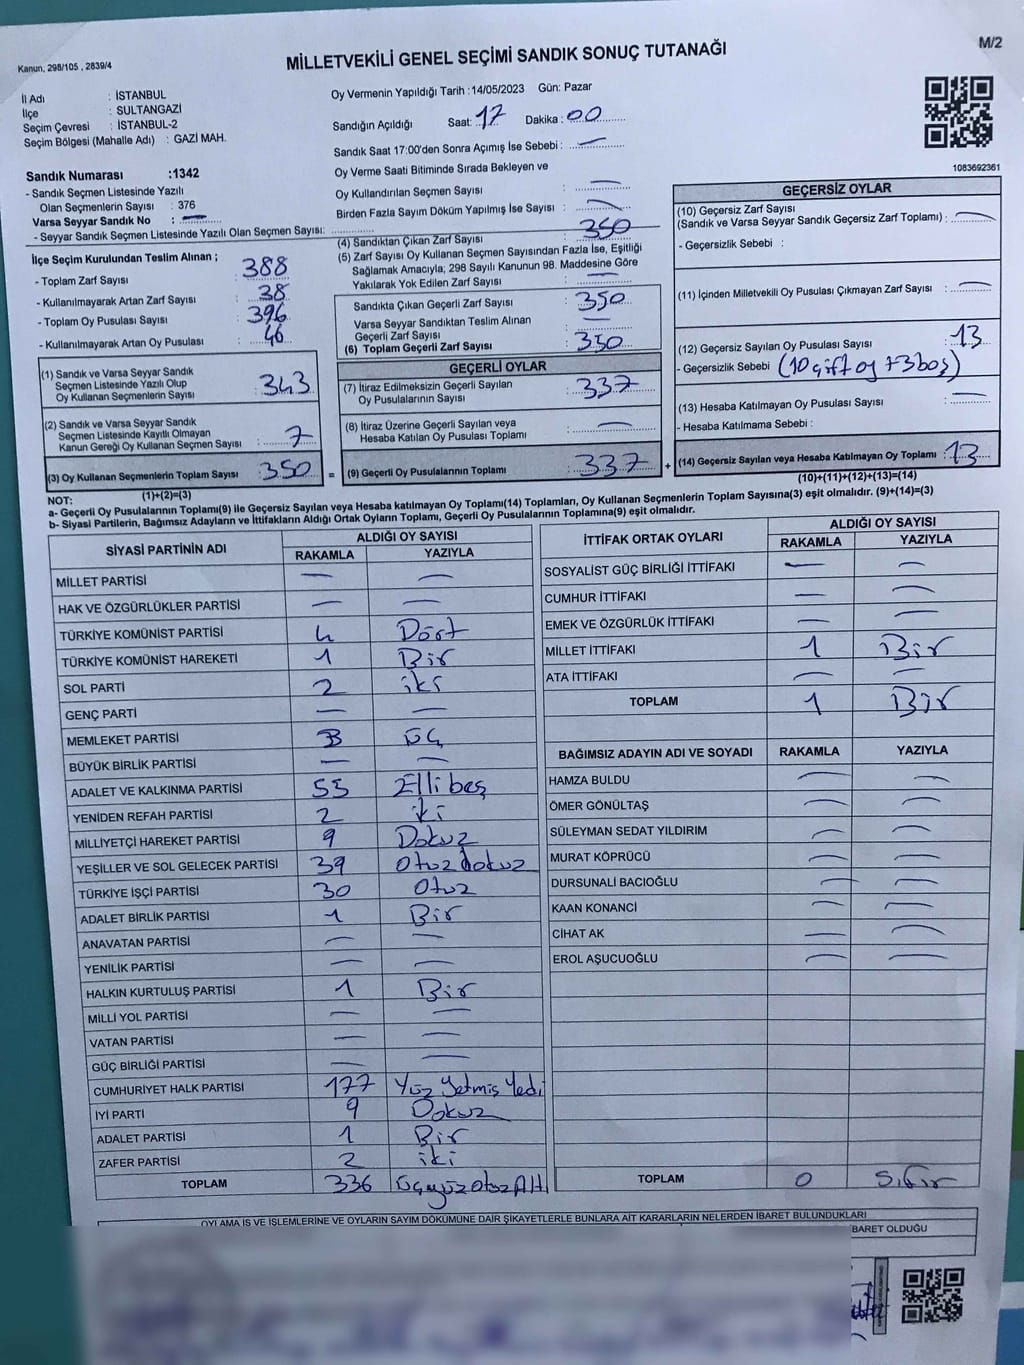 Kanun, 298/105 , 2839/4
MİLLETVEKİLİ GENEL SEÇİMİ SANDIK SONUÇ TUTANAĞI
M/2
İl Adı : İSTANBUL
İlçe : SULTANGAZİ
Seçim Çevresi : İSTANBUL-2
Seçim Bölgesi (Mahalle Adı) : GAZİ MAH.
Sandık Numarası :1342
- Sandık Seçmen Listesinde Yazılı
Olan Seçmenlerin Sayısı : 376
Varsa Seyyar Sandık No : —
- Seyyar Sandık Seçmen Listesinde Yazılı Olan Seçmen Sayısı:
Oy Vermenin Yapıldığı Tarih :14/05/2023 Gün: Pazar
Sandığın Açıldığı Saat: 17 Dakika : 00
Sandık Saat 17:00'den Sonra Açımış İse Sebebi : —
Oy Verme Saati Bitiminde Sırada Bekleyen ve
Oy Kullandırılan Seçmen Sayısı : —
Birden Fazla Sayım Döküm Yapılmış İse Sayısı : —
1083692361
İlçe Seçim Kurulundan Teslim Alınan ;
- Toplam Zarf Sayısı : 388
- Kullanılmayarak Artan Zarf Sayısı : 38
- Toplam Oy Pusulası Sayısı : 396
- Kullanılmayarak Artan Oy Pusulası : 46
(1) Sandık ve Varsa Seyyar Sandık
Seçmen Listesinde Yazılı Olup
Oy Kullanan Seçmenlerin Sayısı : 343
(2) Sandık ve Varsa Seyyar Sandık
Seçmen Listesinde Kayıtlı Olmayan
Kanun Gereği Oy Kullanan Seçmen Sayısı : 7
(3) Oy Kullanan Seçmenlerin Toplam Sayısı : 350
(1)+(2)=(3)
(4) Sandıktan Çıkan Zarf Sayısı : 350
(5) Zarf Sayısı Oy Kullanan Seçmen Sayısından Fazla İse, Eşitliği
Sağlamak Amacıyla; 298 Sayılı Kanunun 98. Maddesine Göre
Yakılarak Yok Edilen Zarf Sayısı : —
Sandıkta Çıkan Geçerli Zarf Sayısı : 350
Varsa Seyyar Sandıktan Teslim Alınan
Geçerli Zarf Sayısı : —
(6) Toplam Geçerli Zarf Sayısı : 350
GEÇERLİ OYLAR
(7) İtiraz Edilmeksizin Geçerli Sayılan
Oy Pusulalarının Sayısı : 337
(8) İtiraz Üzerine Geçerli Sayılan veya
Hesaba Katılan Oy Pusulası Toplamı : —
= (9) Geçerli Oy Pusulalarının Toplamı : 337 +
GEÇERSİZ OYLAR
(10) Geçersiz Zarf Sayısı
(Sandık ve Varsa Seyyar Sandık Geçersiz Zarf Toplamı) : —
- Geçersizlik Sebebi :
(11) İçinden Milletvekili Oy Pusulası Çıkmayan Zarf Sayısı : —
(12) Geçersiz Sayılan Oy Pusulası Sayısı : 13
- Geçersizlik Sebebi (10 çift oy +3 boş)
(13) Hesaba Katılmayan Oy Pusulası Sayısı : —
- Hesaba Katılmama Sebebi :
(14) Geçersiz Sayılan veya Hesaba Katılmayan Oy Toplamı : 13
(10)+(11)+(12)+(13)=(14)
NOT:
a- Geçerli Oy Pusulalarının Toplamı(9) ile Geçersiz Sayılan veya Hesaba katılmayan Oy Toplamı(14) Toplamları, Oy Kullanan Seçmenlerin Toplam Sayısına(3) eşit olmalıdır. (9)+(14)=(3)
b- Siyasi Partilerin, Bağımsız Adayların ve İttifakların Aldığı Ortak Oyların Toplamı, Geçerli Oy Pusulalarının Toplamına(9) eşit olmalıdır.
SİYASİ PARTİNİN ADI ALDIĞI OY SAYISI
RAKAMLA YAZIYLA
MİLLET PARTİSİ — —
HAK VE ÖZGÜRLÜKLER PARTİSİ — —
TÜRKİYE KOMÜNİST PARTİSİ 4 Dört
TÜRKİYE KOMÜNİST HAREKETİ 1 Bir
SOL PARTİ 2 iki
GENÇ PARTİ — —
MEMLEKET PARTİSİ 3 ÜÇ
BÜYÜK BİRLİK PARTİSİ — —
ADALET VE KALKINMA PARTİSİ 55 Ellibeş
YENİDEN REFAH PARTİSİ 2 iki
MİLLİYETÇİ HAREKET PARTİSİ 9 Dokuz
YEŞİLLER VE SOL GELECEK PARTİSİ 39 Otuzdokuz
TÜRKİYE İŞÇİ PARTİSİ 30 Otuz
ADALET BİRLİK PARTİSİ 1 Bir
ANAVATAN PARTİSİ — —
YENİLİK PARTİSİ — —
HALKIN KURTULUŞ PARTİSİ 1 Bir
MİLLİ YOL PARTİSİ — —
VATAN PARTİSİ — —
GÜÇ BİRLİĞİ PARTİSİ — —
CUMHURİYET HALK PARTİSİ 177 Yüz Yetmiş Yedi
İYİ PARTİ 9 Dokuz
ADALET PARTİSİ 1 Bir
ZAFER PARTİSİ 2 iki
TOPLAM 336 Üçyüz Otuz Altı
İTTİFAK ORTAK OYLARI ALDIĞI OY SAYISI
RAKAMLA YAZIYLA
SOSYALİST GÜÇ BİRLİĞİ İTTİFAKI — —
CUMHUR İTTİFAKI — —
EMEK VE ÖZGÜRLÜK İTTİFAKI — —
MİLLET İTTİFAKI 1 Bir
ATA İTTİFAKI — —
TOPLAM 1 Bir
BAĞIMSIZ ADAYIN ADI VE SOYADI RAKAMLA YAZIYLA
HAMZA BULDU — —
ÖMER GÖNÜLTAŞ — —
SÜLEYMAN SEDAT YILDIRIM — —
MURAT KÖPRÜCÜ — —
DURSUNALİ BACIOĞLU — —
KAAN KONANCİ — —
CİHAT AK — —
EROL AŞUCUOĞLU — —
TOPLAM 0 Sıfır
OYLAMA İŞ VE İŞLEMLERİNE VE OYLARIN SAYIM DÖKÜMÜNE DAİR ŞİKAYETLERLE BUNLARA AİT KARARLARIN NELERDEN İBARET BULUNDUKLARI
BARET OLDUĞU